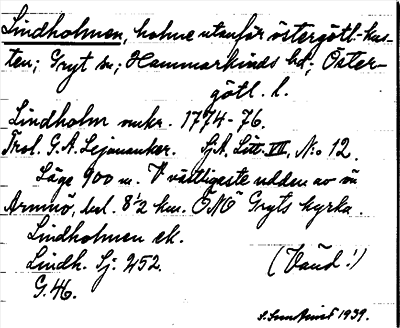 Lindholmen, holme utanför östergötl-kus-
ten; Gryt sn; Hammarkinds hd; Öster-
götl. l.
Lindholm mskr. 1774-76.
Trol. G.A. Lejonanker. Sj.A. Litt. VII, No 12.
Läge 900 m. V västligaste udden av ön
Armnö, bel. 8½ km. ÖNÖ Gryts kyrka.
Lindholmen ek.
Lindh. Sj: 252. (Väud!)
G. 46.
1939.